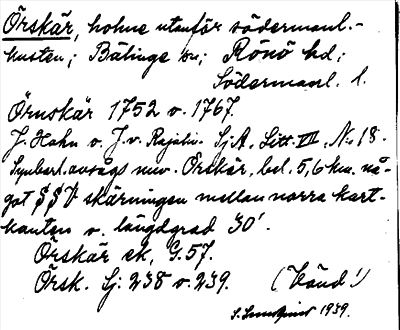 Örskär, holme utanför södermanl.-
kusten; Bälinge sn; Rönö hd;
Södermanl. l.
Örnskär 1752 o. 1767.
J. Hahn o. J. v. Rajalin. SjA. Litt. VII. N:o 18.
Synbarl. avsågs nuv. Örskär, bel. 5,6 km. nå-
got SSV skärningen mellan norra kart-
kanten o. längdgrad 30'.
Örskär ek, G. 57.
Örsk. Sj: 238 o. 239. (Vänd!)
1939.